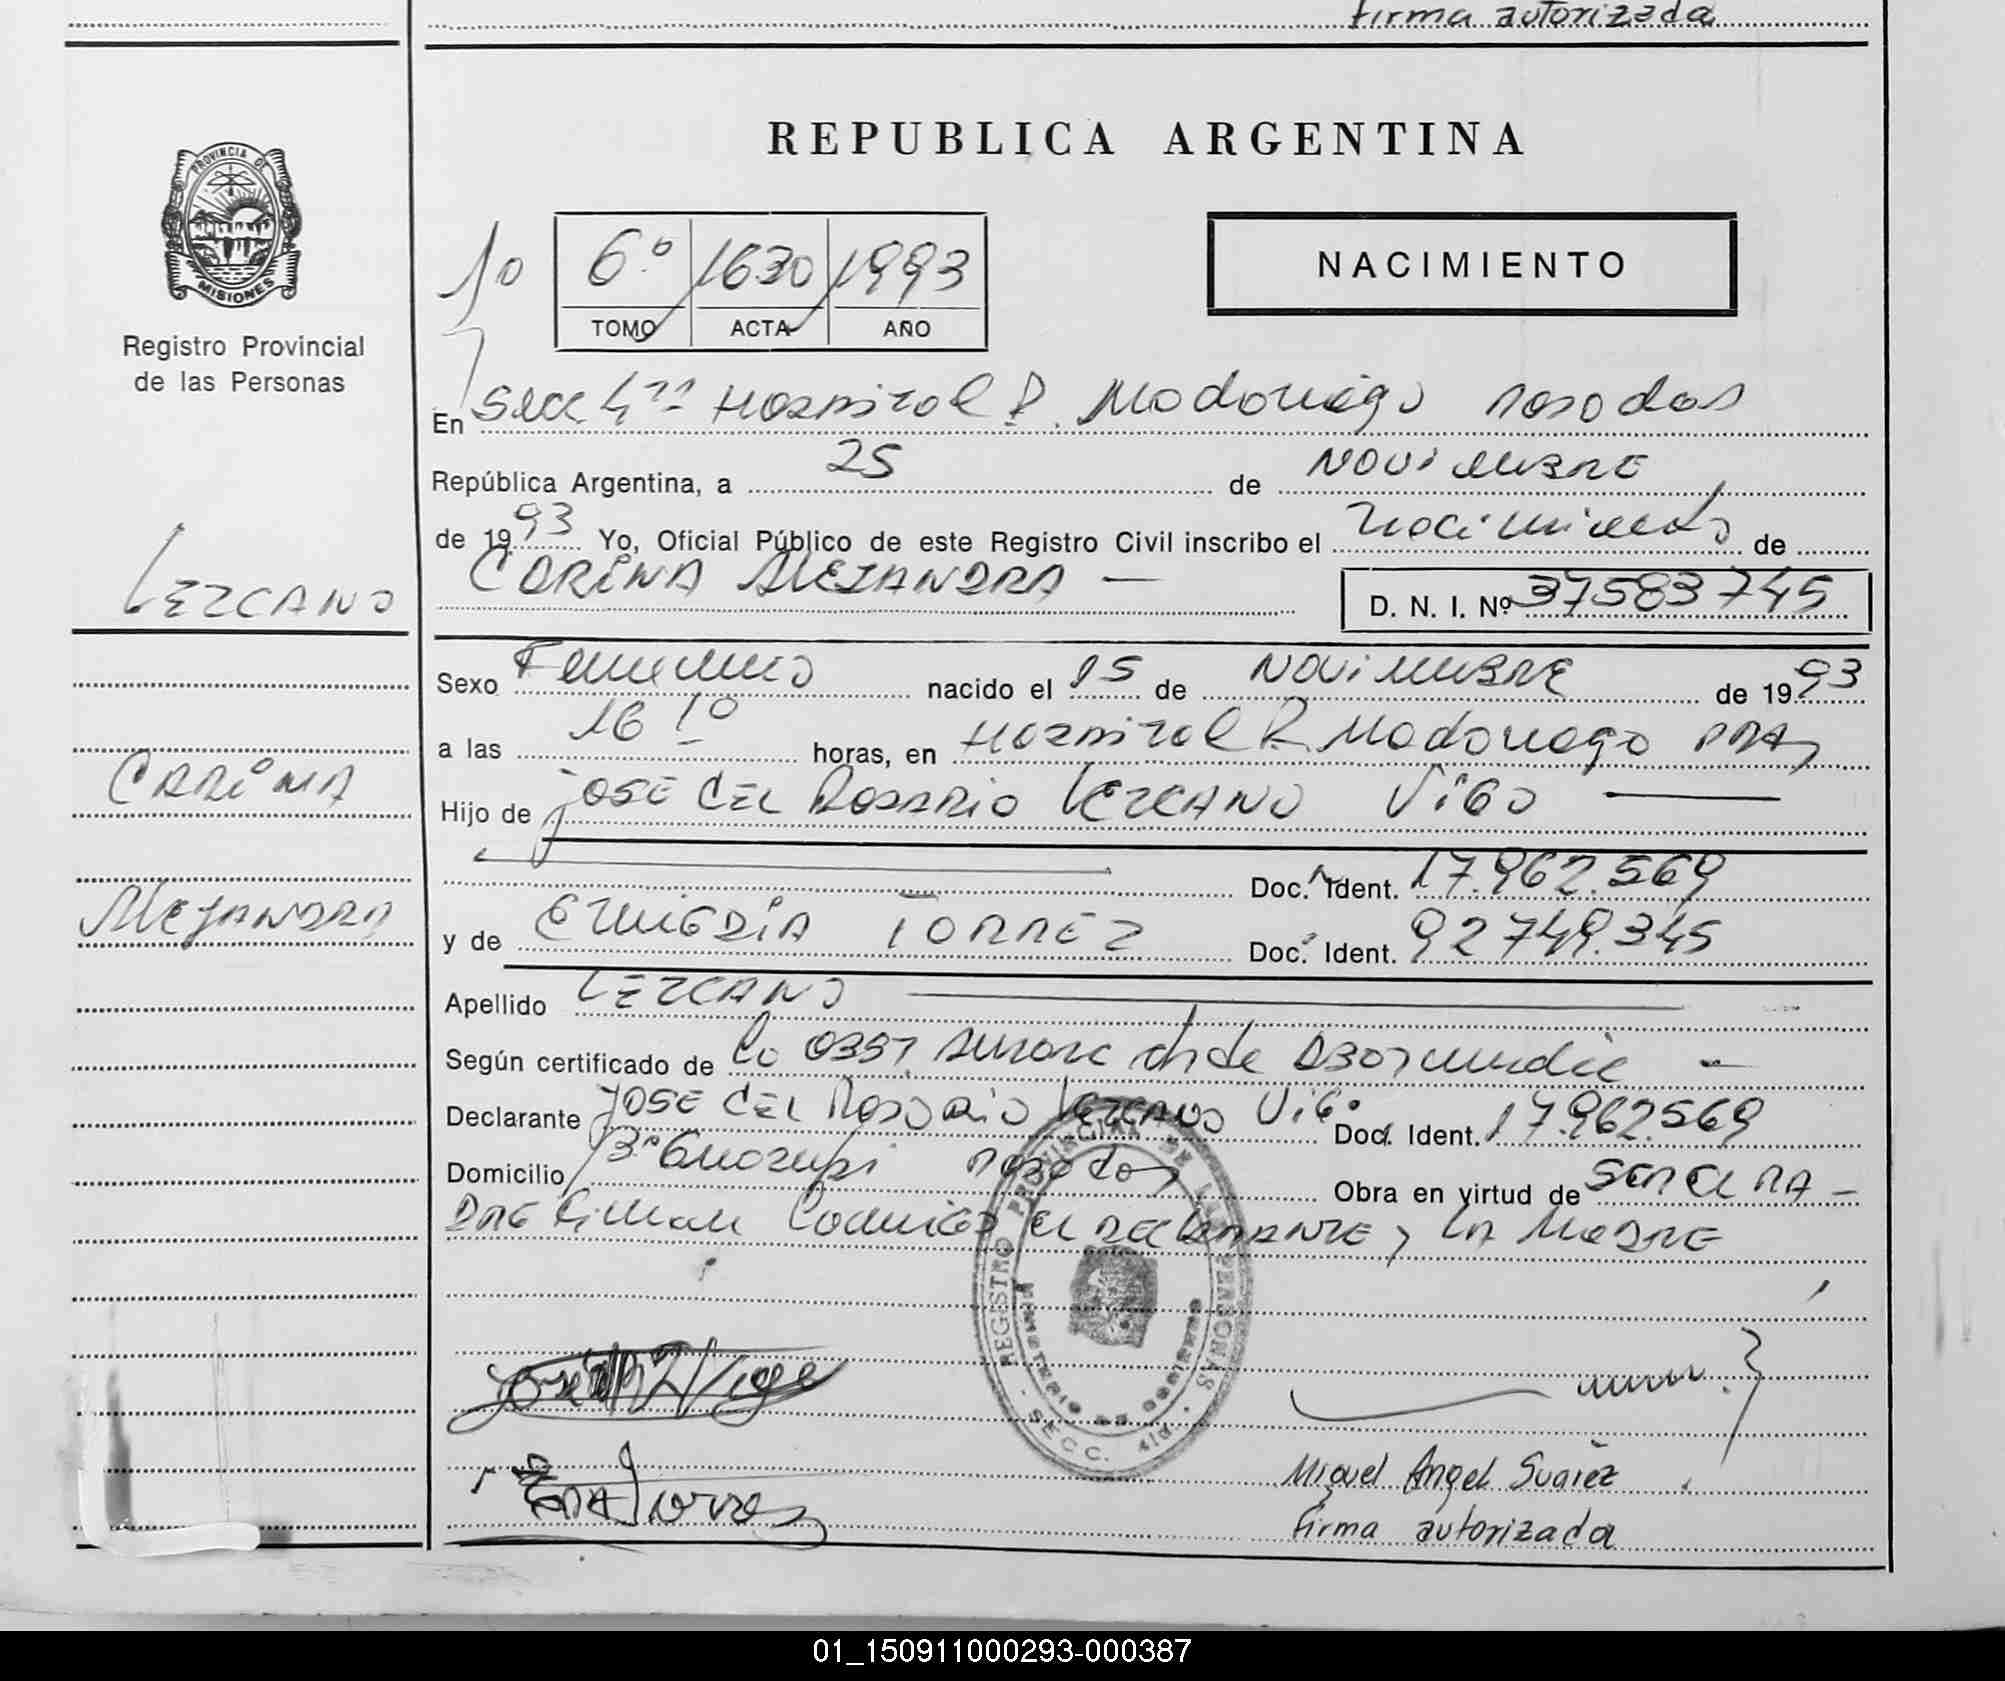 firma autorizada
REPUBLICA ARGENTINA
PROVINCIA DE
MISIONES
Registro Provincial
de las Personas
1º
6º 1630 1993
TOMO ACTA AÑO
NACIMIENTO
En Secc 4ta Hospital R. Madariaga Posadas
República Argentina, a 25 de NOViEMBRE
de 1993 Yo, Oficial Público de este Registro Civil inscribo el nacimiento de
CARiNA ALEJANDRA —
D. N. I. Nº 37583745
LEZCANO
CARiNA
ALEJANDRA
Sexo Femenino nacido el 15 de NOViEMBRE de 1993
a las 16 10 horas, en Hospital R. Madariaga PDAS
Hijo de JOSE DEL ROSARIO LEZCANO ViGO —
Doc. Ident. 17.962.569
y de EMiGDiA TORREZ Doc. Ident. 92749.345
Apellido LEZCANO —
Según certificado de la obst. de —
Declarante JOSE DEL ROSARiO LEZCANO ViGO Doc. Ident. 17.962.569
Domicilio Bº Posadas Obra en virtud de SER EL PA-
DRE Firman Conmigo EL DECLARANTE y LA MADRE
REGISTRO PROVINCIAL DE LAS PERSONAS
MINISTERIO DE GOBIERNO
SECC. 4ta.
José Vigo
Torrez
Miguel Angel Suárez
firma autorizada
01_150911000293-000387